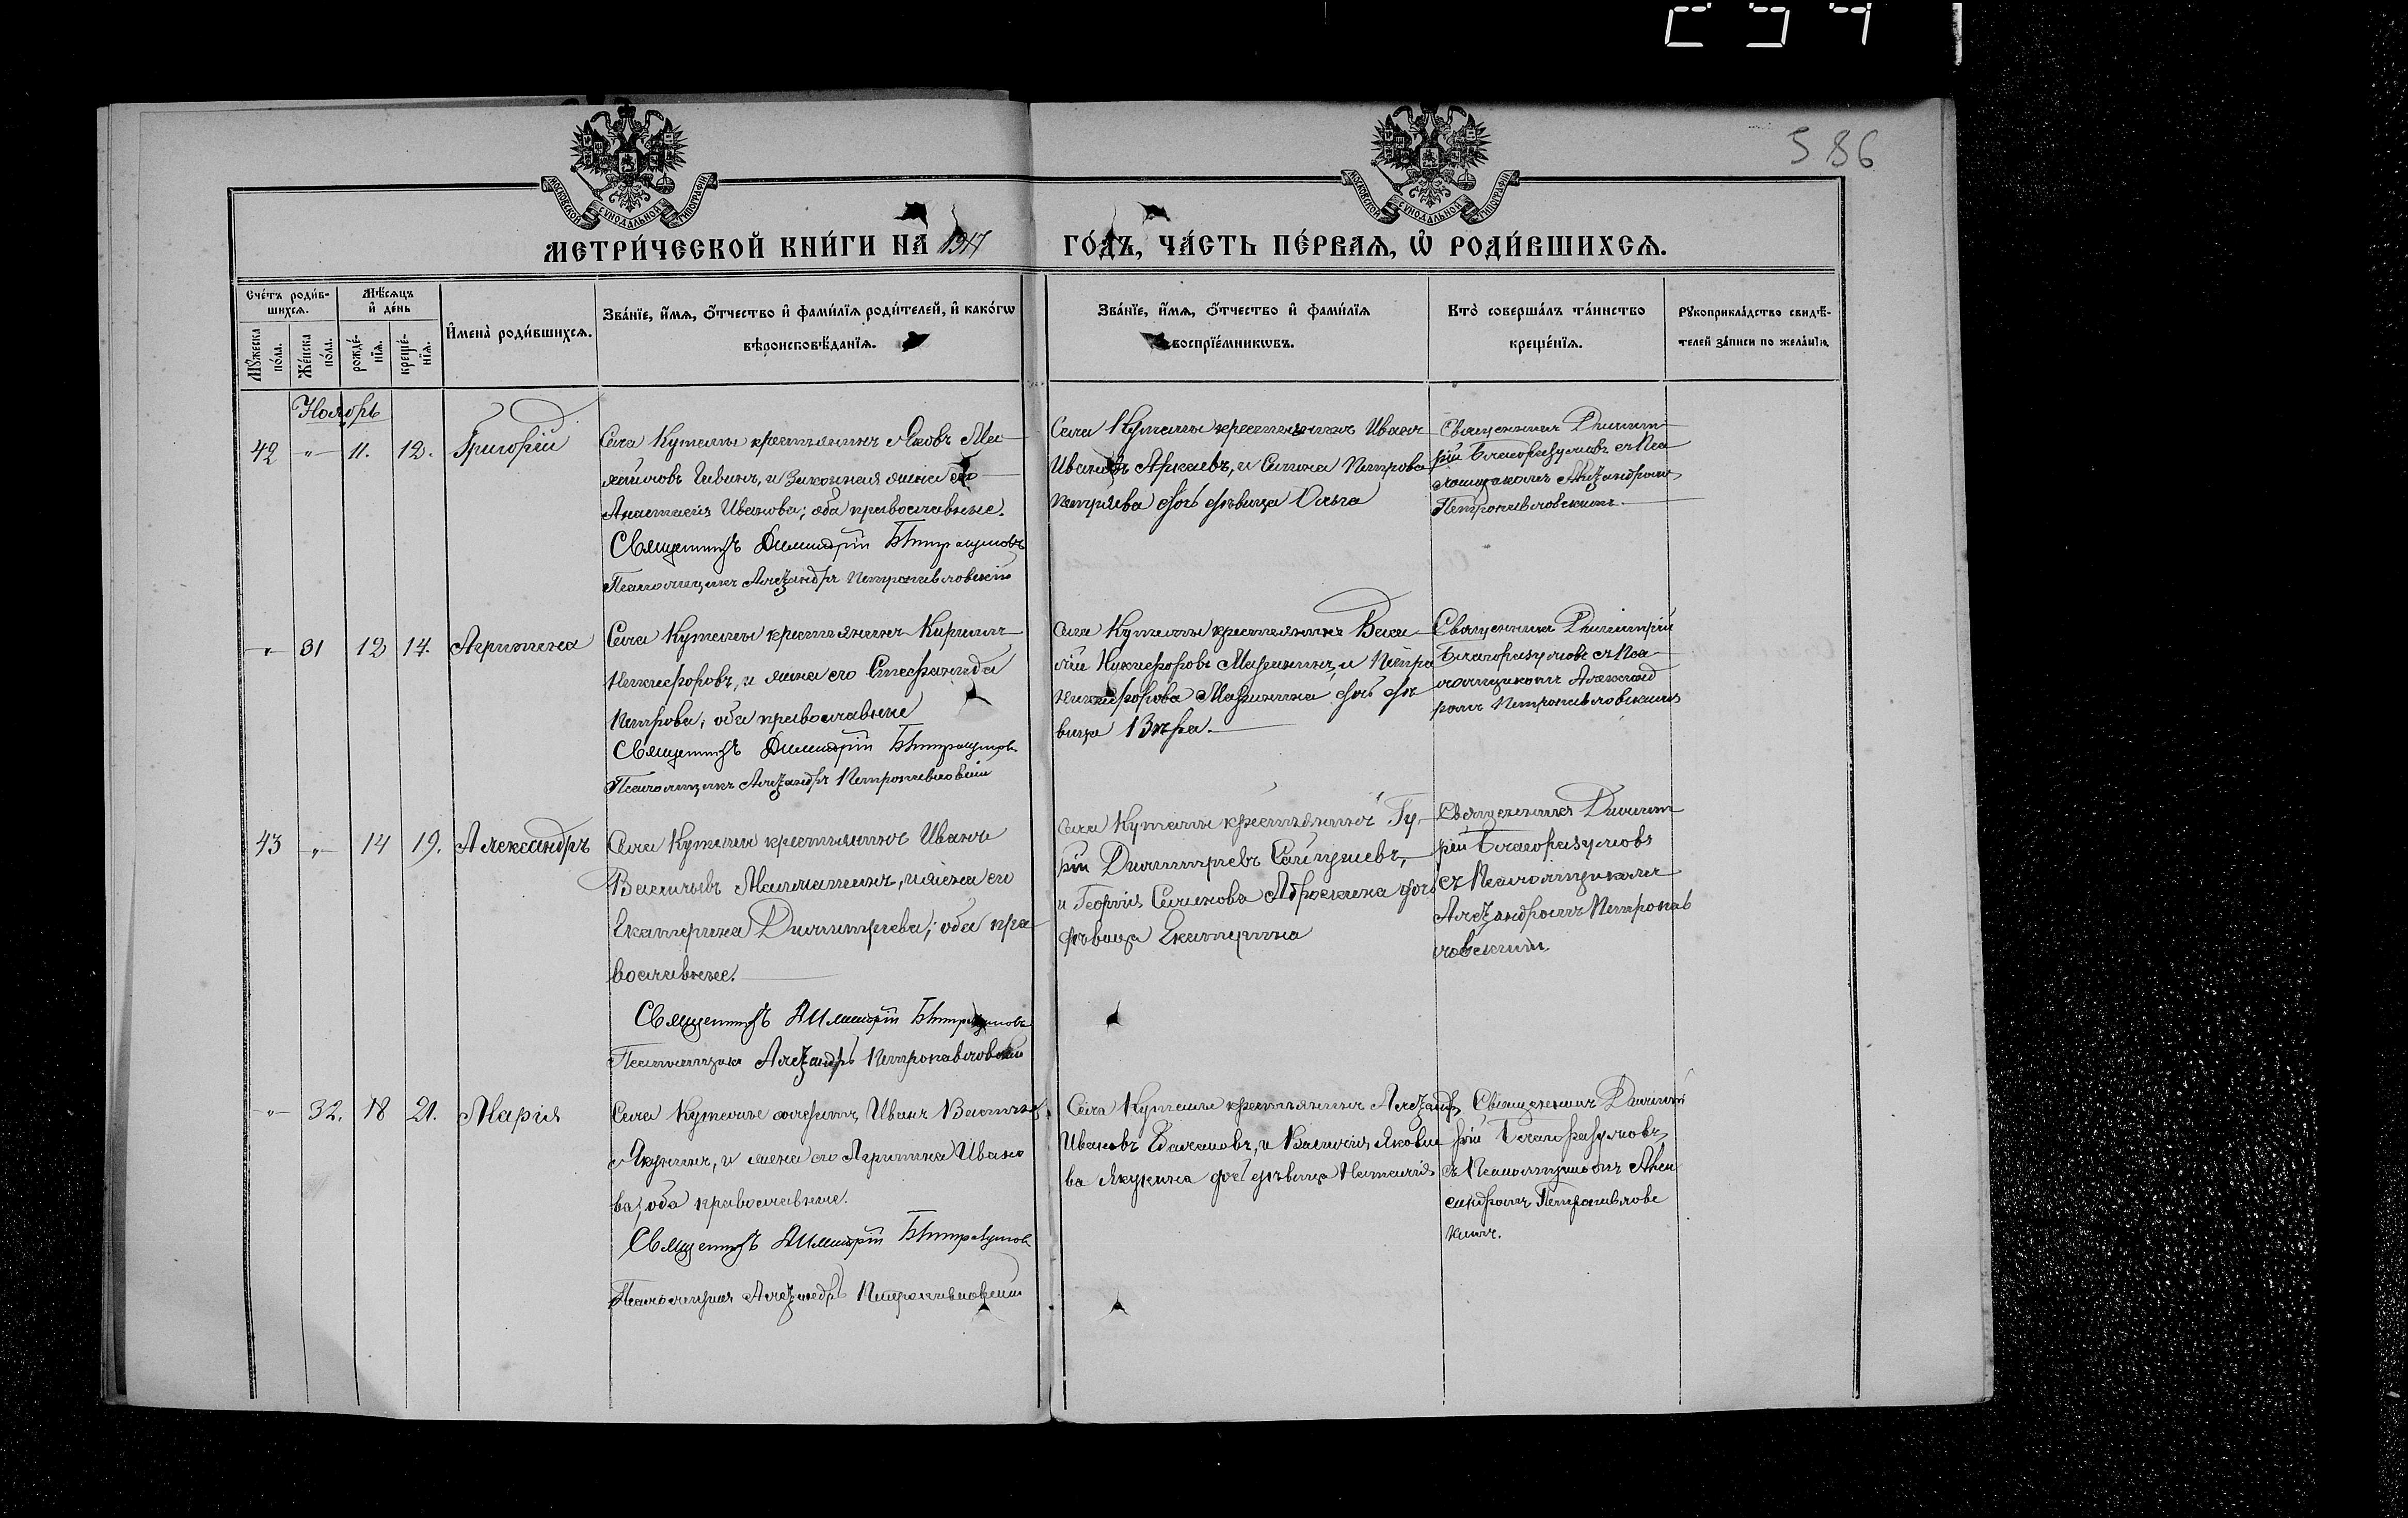 586
МОСКОВСКОЙ СѴНОДАЛЬНОЙ ТИПОГРАФІИ
МОСКОВСКОЙ СѴНОДАЛЬНОЙ ТИПОГРАФІИ
МЕТРИ́ЧЕСКОЙ КНИ́ГИ НА 1917 ГО́ДЪ, ЧА́СТЬ ПЕ́РВАѦ, Ѡ РОДИ́ВШИХСѦ.
Сче́тъ роди́в-
шихсѧ.
Мꙋжеска по́ла.
Же́нска по́ла.
Мѣ́сѧцъ
и҆ де́нь
рожде́-
нїѧ.
креще́-
нїѧ.
И҆мена̀ роди́вшихсѧ.
Зва́нїе, и҆́мѧ, ѻ҆́тчество и҆ фами́лїѧ роди́телей, и҆ како́гѡ
вѣроисповѣ́данїѧ.
Зва́нїе, и҆́мѧ, ѻ҆́тчество и҆ фами́лїѧ
воспрїе́мникѡвъ.
Кто̀ соверша́лъ та́инство
креще́нїѧ.
Рꙋкоприкла́дство свидѣ́-
телей за́писи по жела́нїю.
Ноябрь
42 -„- 11. 12. Григорій
Села Кутемы крестьянинъ Яковъ
и законная жена его
Анастасія Иванова; оба православные.
Священникъ Димитрій Благоразумовъ
Псаломщикъ Александръ Петропавловскій
Села Кутемы крестьянинъ Иванъ
Ивановъ и Петрова
дочь дѣвица Ольга
Священникъ Димит-
рій Благоразумовъ съ Пса
ломщикомъ Александромъ
Петропавловскимъ
-„- 31 12 14. Агрипина
Села Кутемы крестьянинъ Кириллъ
Никифоровъ, и жена его Стефанида
Петрова; оба православные
Священникъ Димитрій Благоразумовъ
Псаломщикъ Александръ Петропавловскій
Села Кутемы крестьянинъ Васи-
лій Никифоровъ и Петра
Никифорова дочь дѣ-
вица Вѣра.
Священникъ Димитрій
Благоразумовъ съ Пса-
ломщикомъ Александ
ромъ Петропавловскимъ
43 -„- 14 19. Александръ
Села Кутемы крестьянинъ Иванъ
Васильевъ и жена его
Екатерина Димитріева; оба пра
вославные.
Священникъ Димитрій Благоразумовъ
Псаломщикъ Александръ Петропавловскій
Села Кутемы крестьянинъ Гу-
рій Димитріевъ
и Георгія Семенова дочь
дѣвица Екатерина
Священникъ Димит
рій Благоразумовъ
съ Псаломщикомъ
Александромъ Петропав
ловскимъ.
-„- 32. 18 21. Марія
Села Кутемы Иванъ Васильевъ
Якунинъ, и жена его Агрипина Ивано
ва; оба православные.
Священникъ Димитрій Благоразумовъ
Псаломщикъ Александръ Петропавловскій
Села Кутемы крестьянинъ Александръ
Ивановъ и Василія Яковле
ва Якунина дочь дѣвица Наталія
Священникъ Димит
рій Благоразумовъ
съ Псаломщикомъ Алек
сандромъ Петропавловс
кимъ.